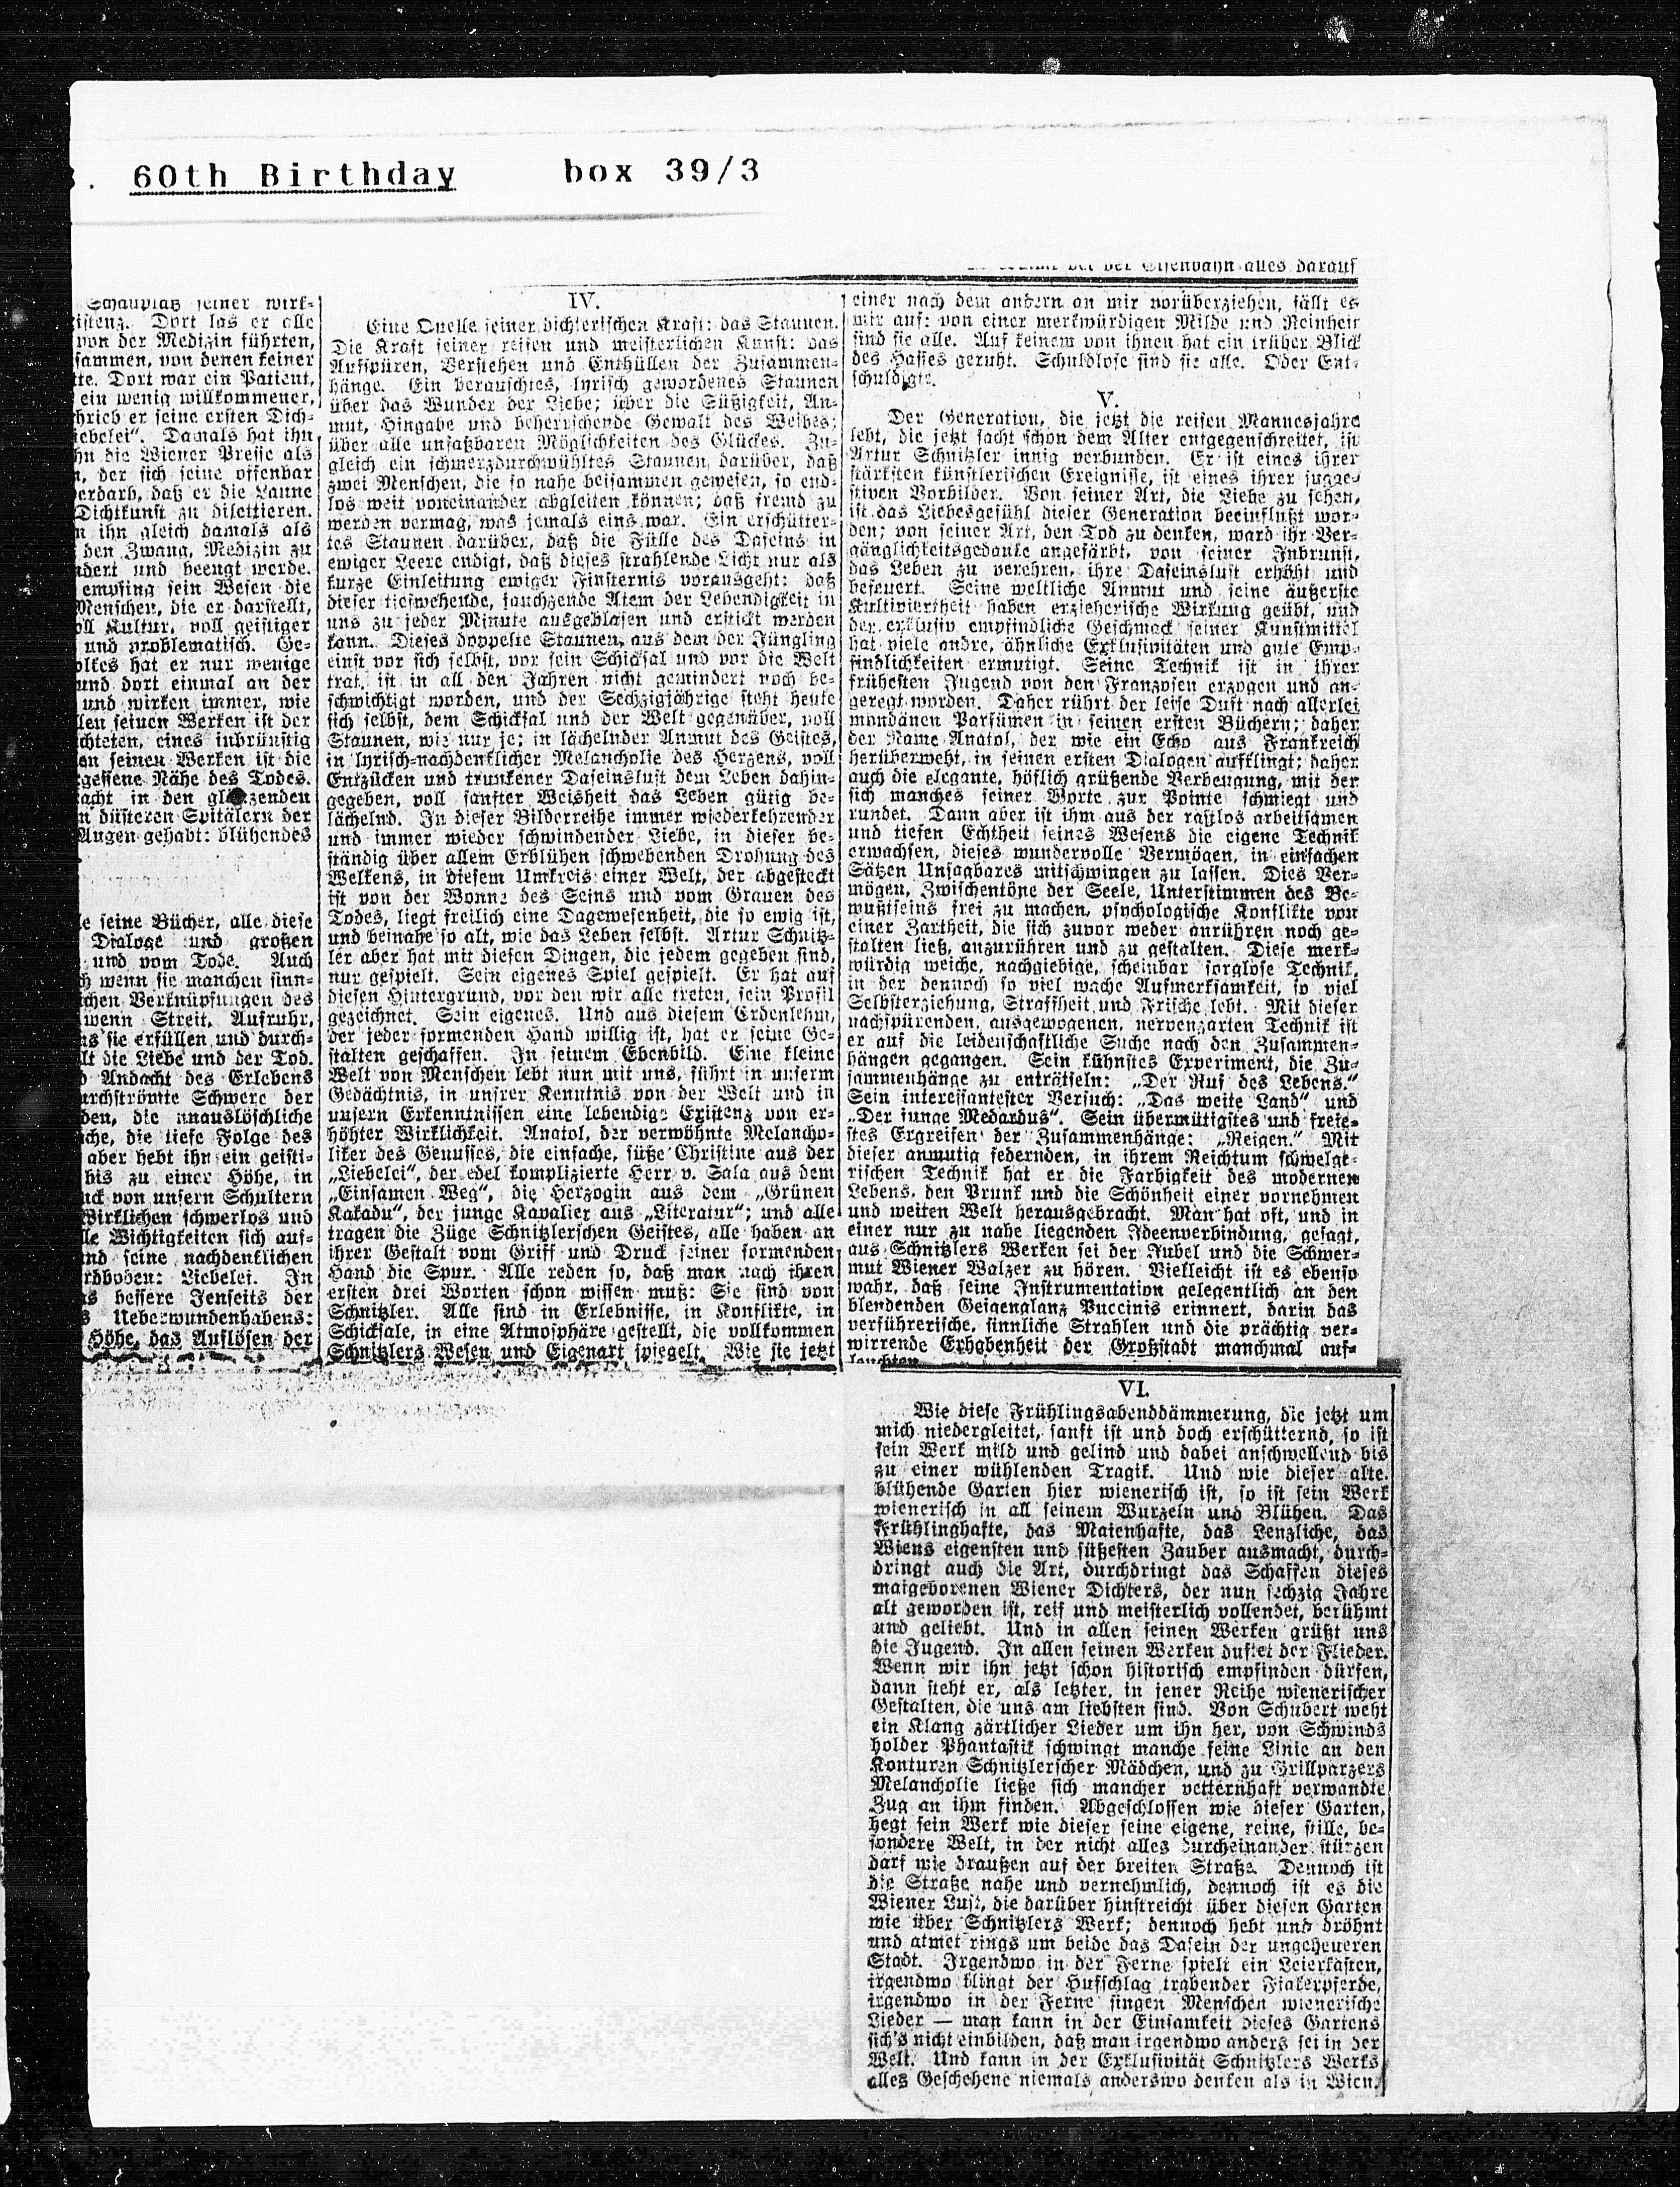 60th Birthday box 39/3
Eisenbahn alles darauf
Schauplatz seiner wirk-
istenz. Dort las er alle
von der Medizin führten,
sammen, von denen keiner
te. Dort war ein Patient,
ein wenig willkommener,
hrieb er seine ersten Dich-
iebelei“. Damals hat ihn
hn die Wiener Presse als
n, der sich seine offenbar
verdarb, daß er die Laune
Dichtkunst zu dilettieren.
n ihn gleich damals als
den Zwang, Medizin zu
ndert und beengt werde.
empfing sein Wesen die
Menschen, die er darstellt,
oll Kultur, voll geistiger
und problematisch. Ge-
olkes hat er nur wenige
und dort einmal an der
und wirken immer, wie
llen seinen Werken ist der
chteten, eines inbrünstig
en seinen Werken ist die
gessene Nähe des Todes.
acht in den glänzenden
n düsteren Spitälern der
Augen gehabt: blühendes
e seine Bücher, alle diese
Dialoge und großen
und vom Tode. Auch
ch wenn sie manchen sinn-
ichen Verknüpfungen des
wenn Streit, Aufruhr,
ns sie erfüllen und durch-
lt die Liebe und der Tod.
d Andacht des Erlebens
urchströmte Schwere der
den, die unauslöschliche
iche, die tiefe Folge des
aber hebt ihn ein geisti-
bis zu einer Höhe, in
uck von unsern Schultern
Wirklichen schwerlos und
lle Wichtigkeiten sich auf-
und seine nachdenklichen
rdboden: Liebelei. In
as bessere Jenseits der
s Ueberwundenhabens:
Höhe, das Auflösen der
IV.
Eine Quelle seiner dichterischen Kraft: das Staunen.
Die Kraft seiner reifen und meisterlichen Kunst: das
Aufspüren, Verstehen und Enthüllen der Zusammen-
hänge. Ein berauschtes, lyrisch gewordenes Staunen
über das Wunder der Liebe; über die Süßigkeit, An-
mut, Hingabe und beherrschende Gewalt des Weibes;
über alle unfaßbaren Möglichkeiten des Glückes. Zu-
gleich ein schmerzdurchwühltes Staunen darüber, daß
zwei Menschen, die so nahe beisammen gewesen, so end-
los weit voneinander abgleiten können; daß fremd zu
werden vermag, was jemals eins war. Ein erschütter-
tes Staunen darüber, daß die Fülle des Daseins in
ewiger Leere endigt, daß dieses strahlende Licht nur als
kurze Einleitung ewiger Finsternis vorausgeht: daß
dieser tiefwehende, jauchzende Atem der Lebendigkeit in
uns zu jeder Minute ausgeblasen und erstickt werden
kann. Dieses doppelte Staunen, aus dem der Jüngling
einst vor sich selbst, vor sein Schicksal und vor die Welt
trat, ist in all den Jahren nicht gemindert noch be-
schwichtigt worden, und der Sechzigjährige steht heute
sich selbst, dem Schicksal und der Welt gegenüber, voll
Staunen, wie nur je; in lächelnder Anmut des Geistes,
in lyrisch-nachdenklicher Melancholie des Herzens, voll
Entzücken und trunkener Daseinslust dem Leben dahin-
gegeben, voll sanfter Weisheit das Leben gütig be-
lächelnd. In dieser Bilderreihe immer wiederkehrender
und immer wieder schwindender Liebe, in dieser be-
ständig über allem Erblühen schwebenden Drohung des
Welkens, in diesem Umkreis einer Welt, der abgesteckt
ist von der Wonne des Seins und vom Grauen des
Todes, liegt freilich eine Dagewesenheit, die so ewig ist,
und beinahe so alt, wie das Leben selbst. Artur Schnitz-
ler aber hat mit diesen Dingen, die jedem gegeben sind,
nur gespielt. Sein eigenes Spiel gespielt. Er hat auf
diesen Hintergrund, vor den wir alle treten, sein Profil
gezeichnet. Sein eigenes. Und aus diesem Erdenlehm,
der jeder formenden Hand willig ist, hat er seine Ge-
stalten geschaffen. In seinem Ebenbild. Eine kleine
Welt von Menschen lebt nun mit uns, führt in unserm
Gedächtnis, in unsrer Kenntnis von der Welt und in
unsern Erkenntnissen eine lebendige Existenz von er-
höhter Wirklichkeit. Anatol, der verwöhnte Melancho-
liker des Genusses, die einfache, süße Christine aus der
„Liebelei“, der edel komplizierte Herr v. Sala aus dem
„Einsamen Weg“, die Herzogin aus dem „Grünen
Kakadu“, der junge Kavalier aus „Literatur“; und alle
tragen die Züge Schnitzlerschen Geistes, alle haben an
ihrer Gestalt vom Griff und Druck seiner formenden
Hand die Spur. Alle reden so, daß man nach ihren
ersten drei Worten schon wissen muß: Sie sind von
Schnitzler. Alle sind in Erlebnisse, in Konflikte, in
Schicksale, in eine Atmosphäre gestellt, die vollkommen
Schnitzlers Wesen und Eigenart spiegelt. Wie sie jetzt
einer nach dem andern an mir vorüberziehen, fällt es
mir auf: von einer merkwürdigen Milde und Reinheit
sind sie alle. Auf keinem von ihnen hat ein trüber Blick
des Hasses geruht. Schuldlose sind sie alle. Oder Ent-
schuldigte.
V.
Der Generation, die jetzt die reifen Mannesjahre
lebt, die jetzt sacht schon dem Alter entgegenschreitet, ist
Artur Schnitzler innig verbunden. Er ist eines ihrer
stärksten künstlerischen Ereignisse, ist eines ihrer sugge-
stiven Vorbilder. Von seiner Art, die Liebe zu sehen,
ist das Liebesgefühl dieser Generation beeinflußt wor-
den; von seiner Art, den Tod zu denken, ward ihr Ver-
gänglichkeitsgedanke angefärbt, von seiner Inbrunst,
das Leben zu verehren, ihre Daseinslust erhöht und
befeuert. Seine weltliche Anmut und seine äußerste
Kultiviertheit haben erzieherische Wirkung geübt, und
der exklusiv empfindliche Geschmack seiner Kunstmittel
hat viele andre, ähnliche Exklusivitäten und gute Emp-
findlichkeiten ermutigt. Seine Technik ist in ihrer
frühesten Jugend von den Franzosen erzogen und an-
geregt worden. Daher rührt der leise Duft nach allerlei
mondänen Parfümen in seinen ersten Büchern; daher
der Name Anatol, der wie ein Echo aus Frankreich
herüberweht, in seinen ersten Dialogen aufklingt; daher
auch die elegante, höflich grüßende Verbeugung, mit der
sich manches seiner Worte zur Pointe schmiegt und
rundet. Dann aber ist ihm aus der rastlos arbeitsamen
und tiefen Echtheit seines Wesens die eigene Technik
erwachsen, dieses wundervolle Vermögen, in einfachen
Sätzen Unsagbares mitschwingen zu lassen. Dies Ver-
mögen, Zwischentöne der Seele, Unterstimmen des Be-
wußtseins frei zu machen, psychologische Konflikte von
einer Zartheit, die sich zuvor weder anrühren noch ge-
stalten ließ, anzurühren und zu gestalten. Diese merk-
würdig weiche, nachgiebige, scheinbar sorglose Technik,
in der dennoch so viel wache Aufmerksamkeit, so viel
Selbsterziehung, Straffheit und Frische lebt. Mit dieser
nachspürenden, ausgewogenen, nervenzarten Technik ist
er auf die leidenschaftliche Suche nach den Zusammen-
hängen gegangen. Sein kühnstes Experiment, die Zu-
sammenhänge zu enträtseln: „Der Ruf des Lebens.“
Sein interessantester Versuch: „Das weite Land“ und
„Der junge Medardus“. Sein übermütigstes und freie-
stes Ergreifen der Zusammenhänge: „Reigen.“ Mit
dieser anmutig federnden, in ihrem Reichtum schwelge-
rischen Technik hat er die Farbigkeit des modernen
Lebens, den Prunk und die Schönheit einer vornehmen
und weiten Welt herausgebracht. Man hat oft, und in
einer nur zu nahe liegenden Ideenverbindung, gesagt,
aus Schnitzlers Werken sei der Jubel und die Schwer-
mut Wiener Walzer zu hören. Vielleicht ist es ebenso
wahr, daß seine Instrumentation gelegentlich an den
blendenden Geigenglanz Puccinis erinnert, darin das
verführerische, sinnliche Strahlen und die prächtig ver-
wirrende Erhabenheit der Großstadt manchmal auf-
leuchten
VI.
Wie diese Frühlingsabenddämmerung, die jetzt um
mich niedergleitet, sanft ist und doch erschütternd, so ist
sein Werk mild und gelind und dabei anschwellend bis
zu einer wühlenden Tragik. Und wie dieser alte,
blühende Garten hier wienerisch ist, so ist sein Werk
wienerisch in all seinem Wurzeln und Blühen. Das
Frühlinghafte, das Maienhafte, das Lenzliche, das
Wiens eigensten und süßesten Zauber ausmacht, durch-
dringt auch die Art, durchdringt das Schaffen dieses
maigeborenen Wiener Dichters, der nun sechzig Jahre
alt geworden ist, reif und meisterlich vollendet, berühmt
und geliebt. Und in allen seinen Werken grüßt uns
die Jugend. In allen seinen Werken duftet der Flieder.
Wenn wir ihn jetzt schon historisch empfinden dürfen,
dann steht er, als letzter, in jener Reihe wienerischer
Gestalten, die uns am liebsten sind. Von Schubert weht
ein Klang zärtlicher Lieder um ihn her, von Schwinds
holder Phantastik schwingt manche feine Linie an den
Konturen Schnitzlerscher Mädchen, und zu Grillparzers
Melancholie ließe sich mancher vetternhaft verwandte
Zug an ihm finden. Abgeschlossen wie dieser Garten,
hegt sein Werk wie dieser seine eigene, reine, stille, be-
sondere Welt, in der nicht alles durcheinander stürzen
darf wie draußen auf der breiten Straße. Dennoch ist
die Straße nahe und vernehmlich, dennoch ist es die
Wiener Luft, die darüber hinstreicht über diesen Garten
wie über Schnitzlers Werk; dennoch hebt und dröhnt
und atmet rings um beide das Dasein der ungeheueren
Stadt. Irgendwo in der Ferne spielt ein Leierkasten,
irgendwo klingt der Hufschlag trabender Fiakerpferde,
irgendwo in der Ferne singen Menschen wienerische
Lieder — man kann in der Einsamkeit dieses Gartens
sich's nicht einbilden, daß man irgendwo anders sei in der
Welt. Und kann in der Exklusivität Schnitzlers Werks
alles Geschehene niemals anderswo denken als in Wien.